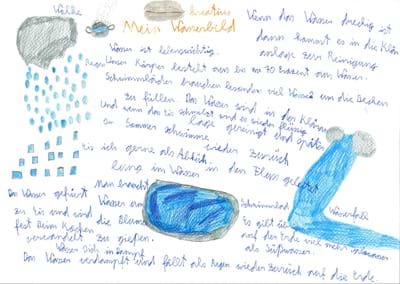 Wolke
kreatives
Mein Wasserbild
Wenn das Wasser dreckig ist
dann kommt es in die Klär
anlage zur Reinigung
Wasser ist lebenswichtig.
Regen
Unser Körper besteht aus bis zu 70 Prozent aus Wasser.
Schwimmbäder brauchen besonders viel Wasser um die Becken
zu füllen. Das Wasser wird in der Klär
und wenn das Eis schmelzt wird es wieder flüssig
lage gereinigt und später
Im Sommer schwimme
wieder zurück
ich gerne als Abkühl
in den Fluss geleitet
lang im Wasser
Das Wasser gefriert
Man braucht
zu Eis und wird
Wasser um
Schwimmbad
Wasserfall
fest Beim Kochen
die Blumen
Es gibt auf
verwandelt
zu gießen.
auf der Erde viel mehr Salzwasser
Wasser sich in Dampf
als Süßwasser.
Das Wasser verdampft und fällt als Regen wieder zurück auf die Erde.